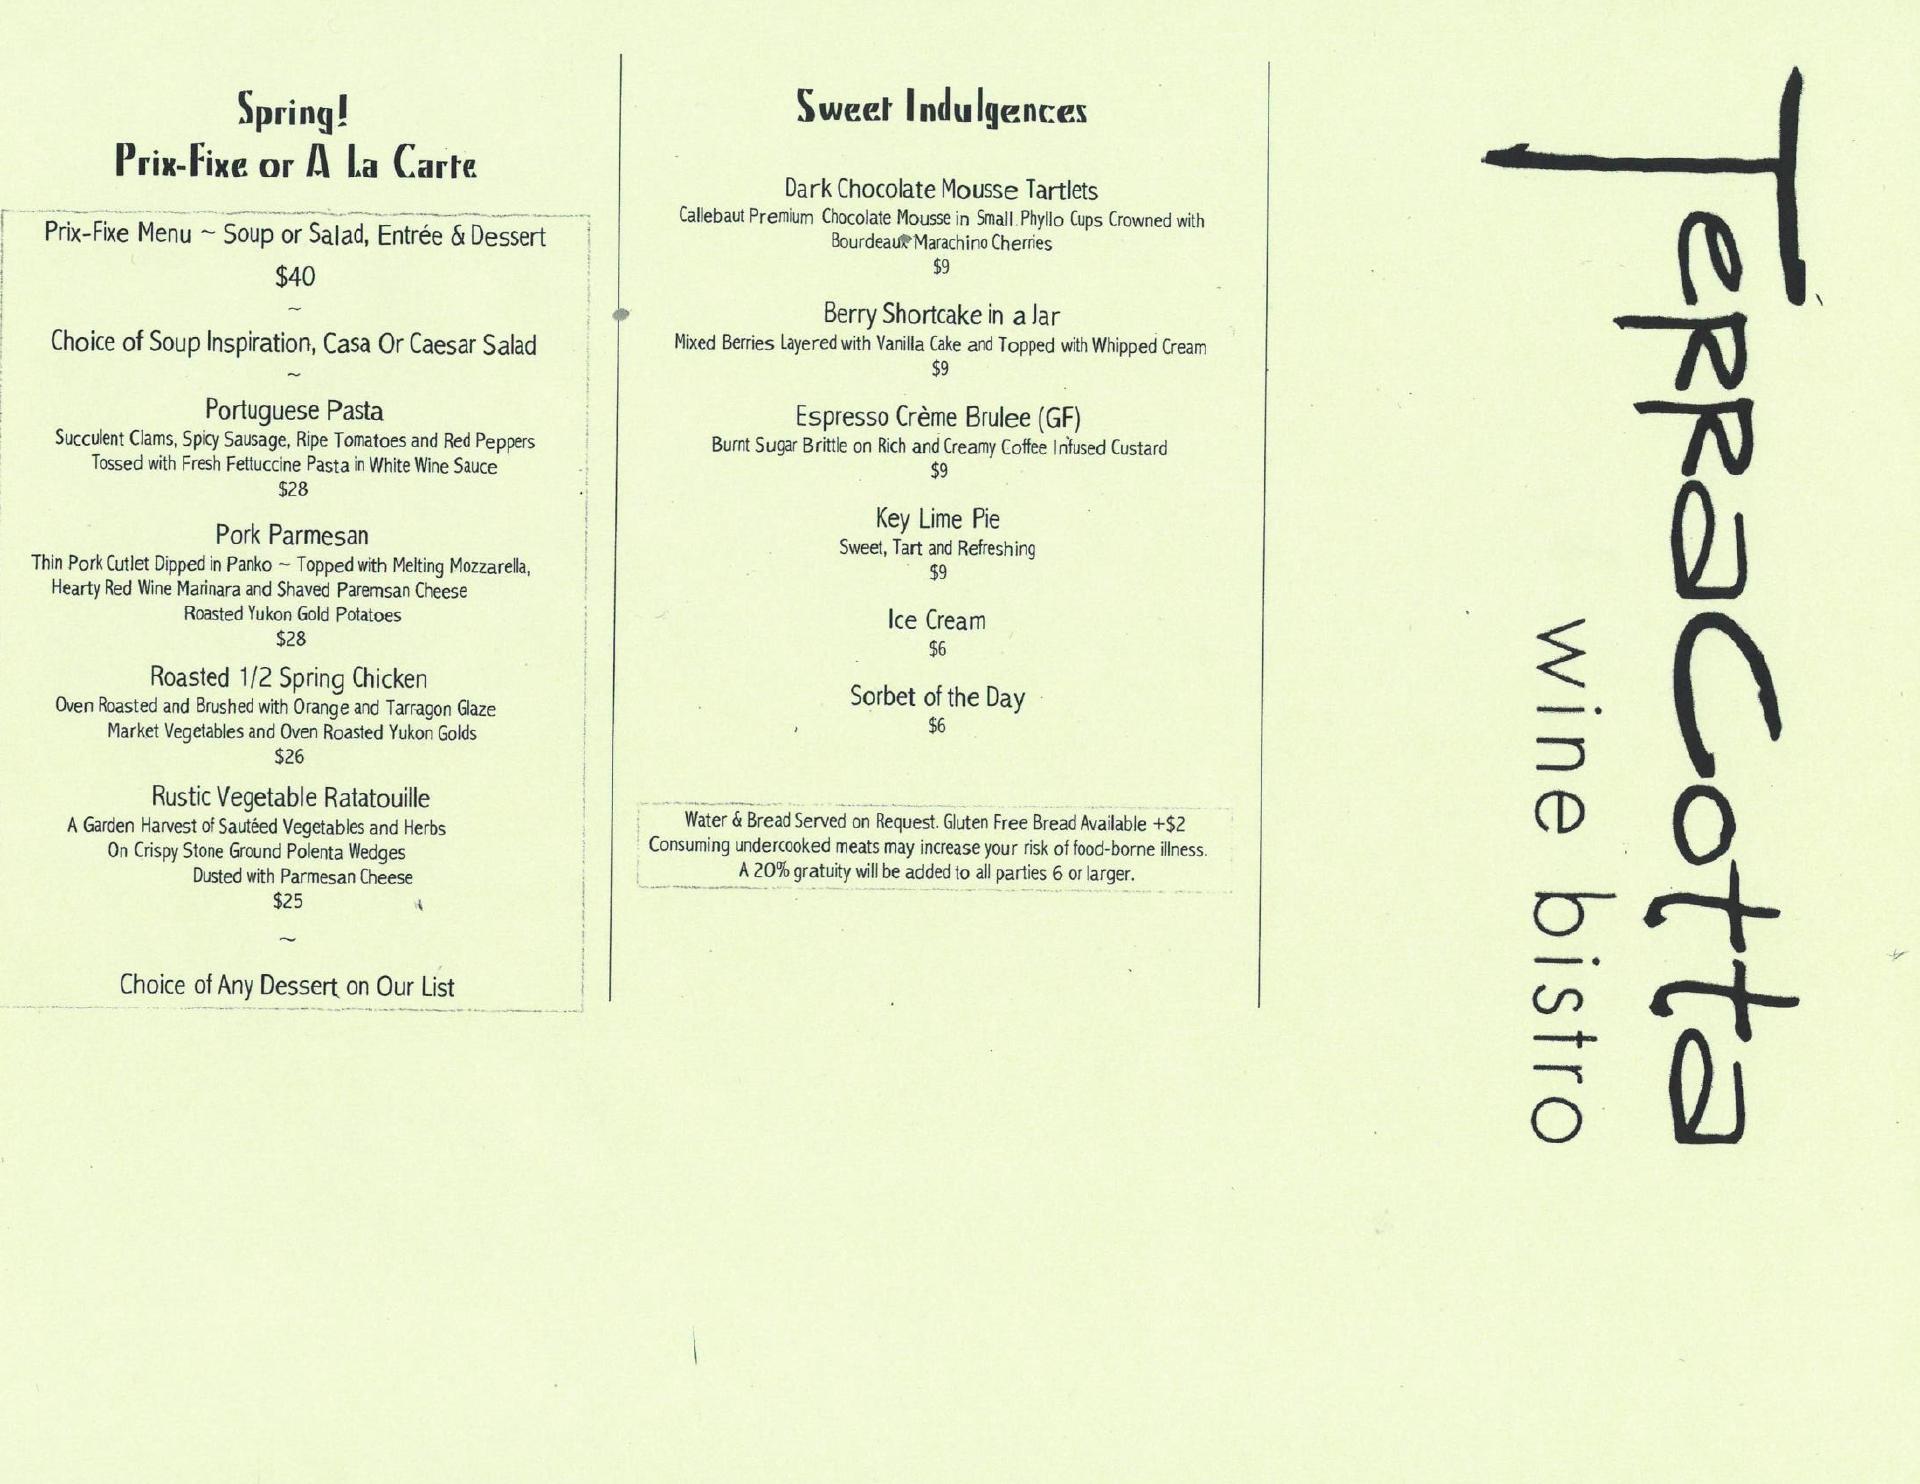 Spring!
Prix-Fixe or A La Carte
Prix-Fixe Menu ~ Soup or Salad, Entrée & Dessert
$40
~
Choice of Soup Inspiration, Casa Or Caesar Salad
~
Portuguese Pasta
Succulent Clams, Spicy Sausage, Ripe Tomatoes and Red Peppers
Tossed with Fresh Fettuccine Pasta in White Wine Sauce
$28
Pork Parmesan
Thin Pork Cutlet Dipped in Panko ~ Topped with Melting Mozzarella,
Hearty Red Wine Marinara and Shaved Paremsan Cheese
Roasted Yukon Gold Potatoes
$28
Roasted 1/2 Spring Chicken
Oven Roasted and Brushed with Orange and Tarragon Glaze
Market Vegetables and Oven Roasted Yukon Golds
$26
Rustic Vegetable Ratatouille
A Garden Harvest of Sautéed Vegetables and Herbs
On Crispy Stone Ground Polenta Wedges
Dusted with Parmesan Cheese
$25
~
Choice of Any Dessert on Our List
Sweet Indulgences
Dark Chocolate Mousse Tartlets
Callebaut Premium Chocolate Mousse in Small Phyllo Cups Crowned with
Bourdeaux Marachino Cherries
$9
Berry Shortcake in a Jar
Mixed Berries Layered with Vanilla Cake and Topped with Whipped Cream
$9
Espresso Crème Brulee (GF)
Burnt Sugar Brittle on Rich and Creamy Coffee Infused Custard
$9
Key Lime Pie
Sweet, Tart and Refreshing
$9
Ice Cream
$6
Sorbet of the Day
$6
Water & Bread Served on Request. Gluten Free Bread Available +$2
Consuming undercooked meats may increase your risk of food-borne illness.
A 20% gratuity will be added to all parties 6 or larger.
TerraCotta
wine bistro